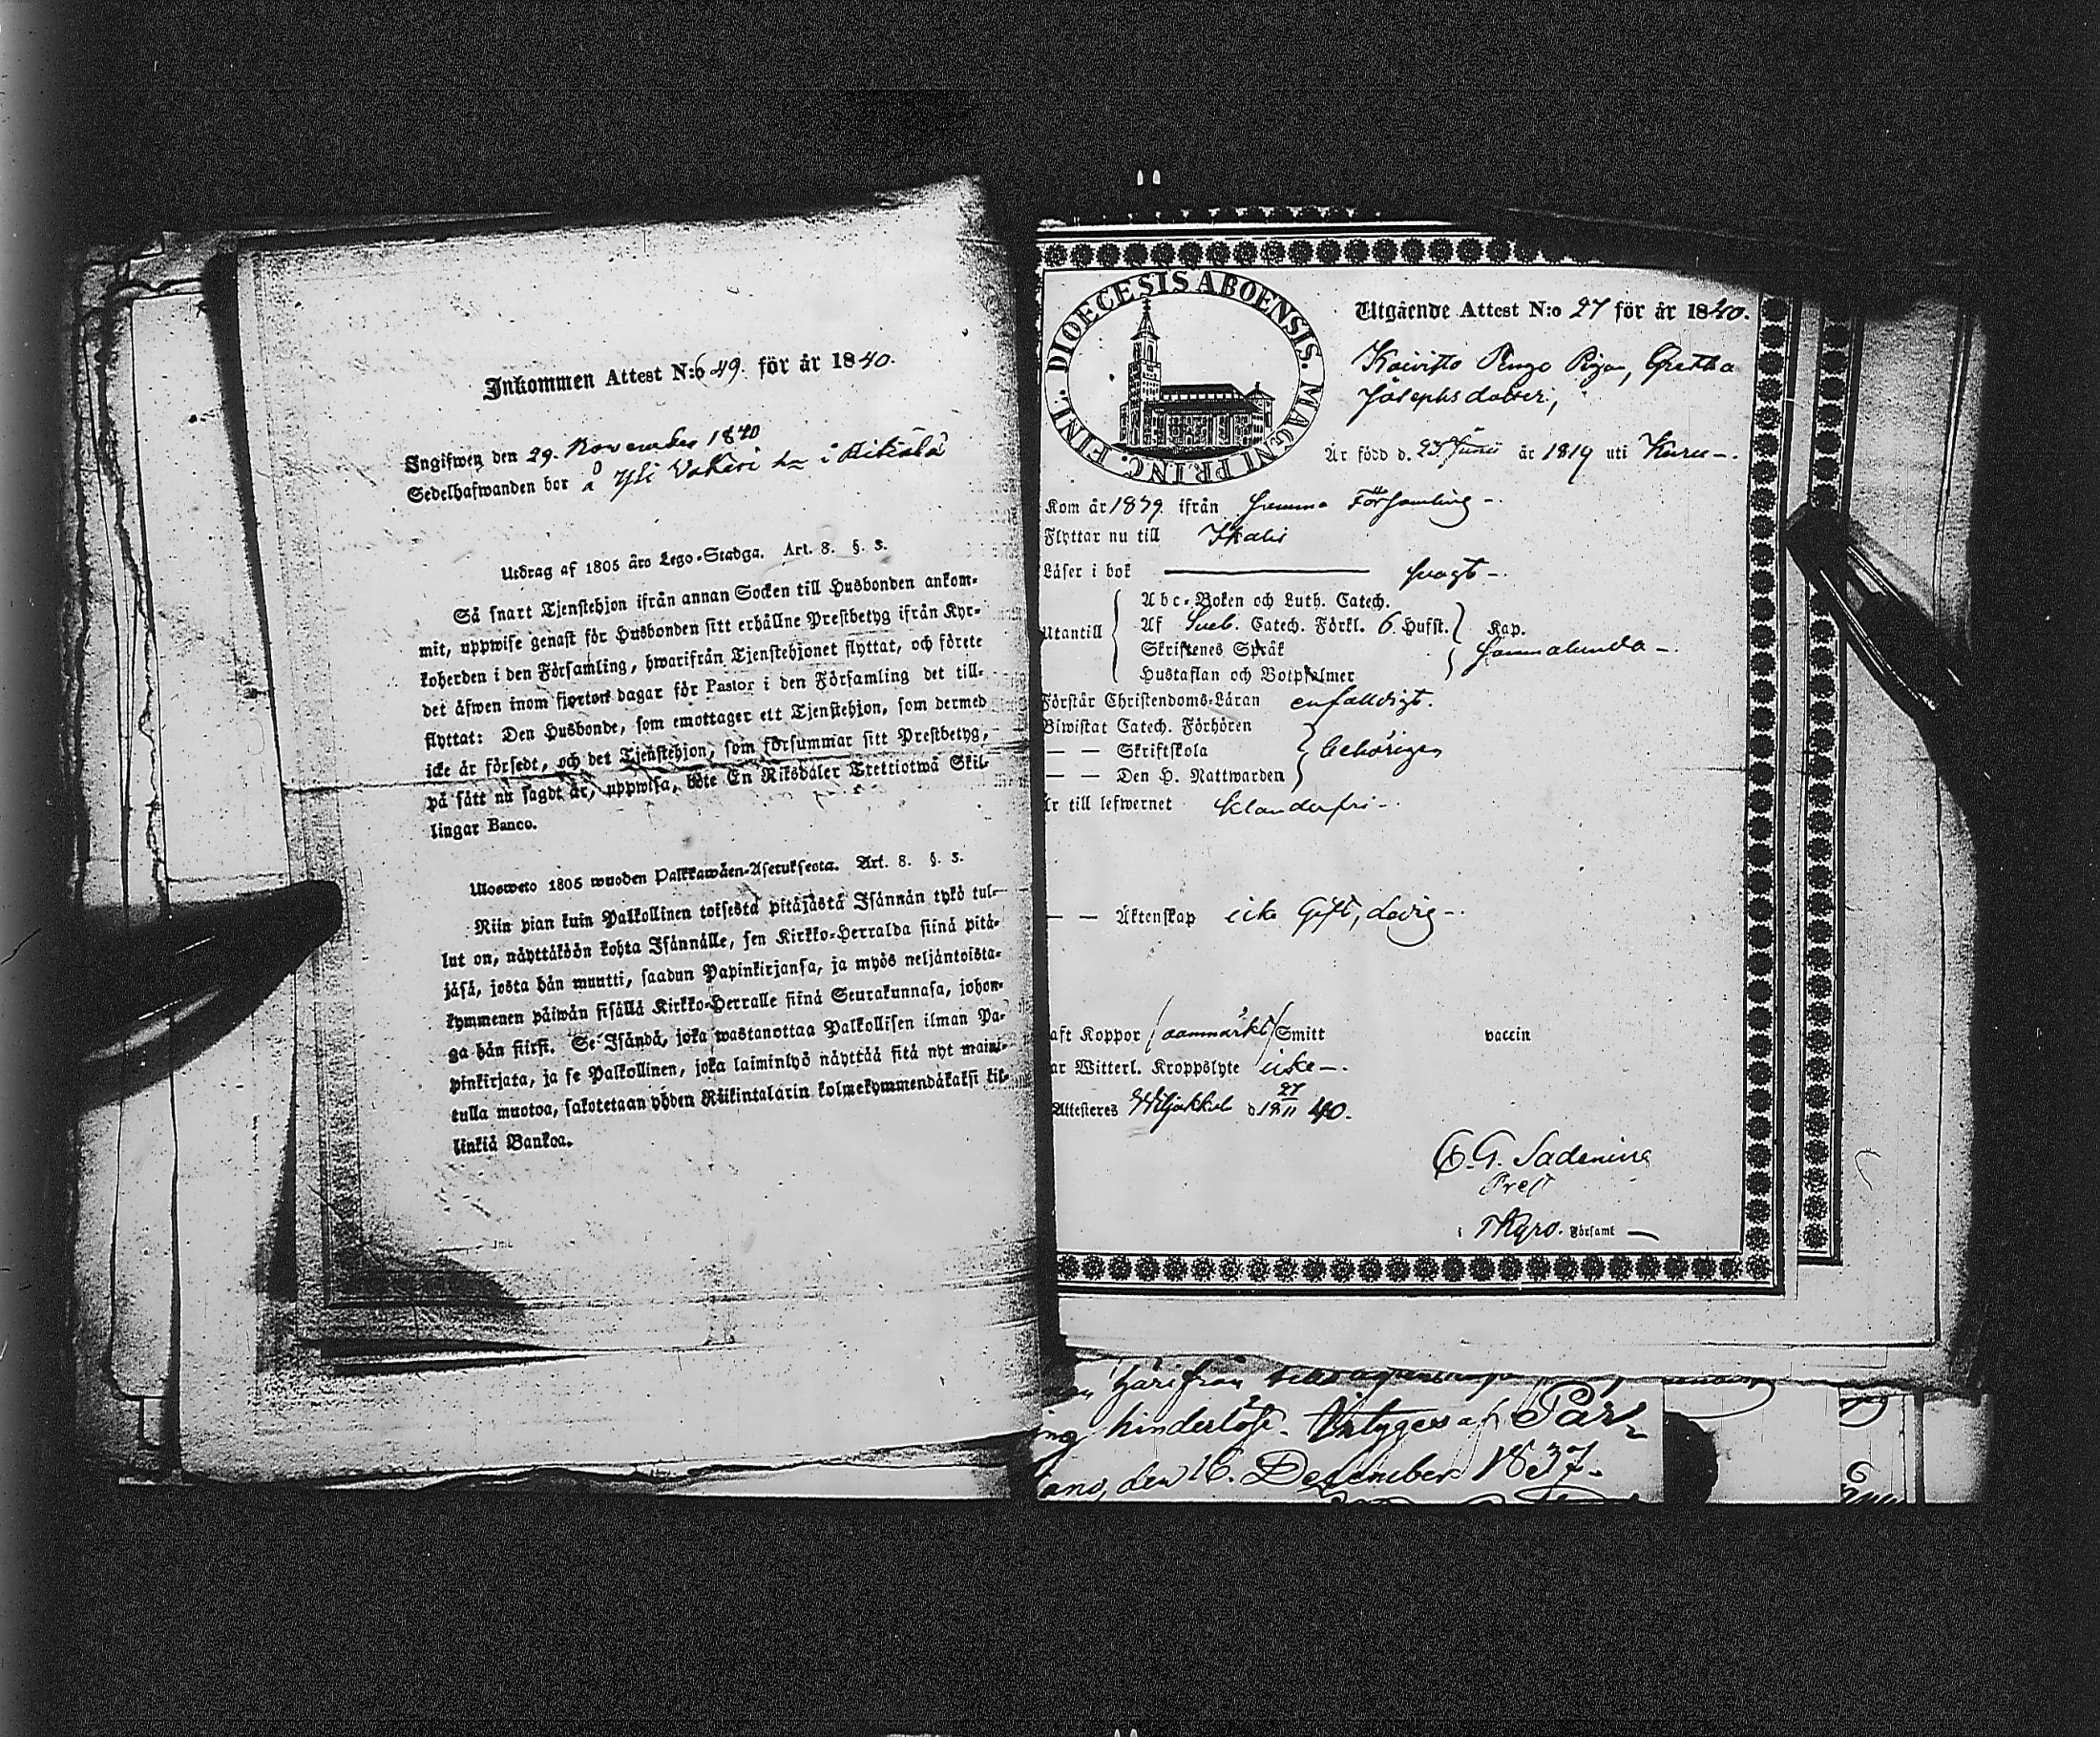 Inkommen Attest N:o 49. för år 1840.
Ingifwen den 29. November 1840
Sedelhafwanden bor å Yli Vakeri hn i
Utdrag af 1805 års Lego-Stadga. Art. 8. §. 3.
Så snart Tjenstehjon ifrån annan Socken till Husbonden ankom-
mit, uppwise genast för Husbonden sitt erhållne Prestbetyg ifrån Kyr-
koherden i den Församling, hwarifrån Tjenstehjonet flyttat, och förete
det äfwen inom fjorton dagar för Pastor i den Församling det till-
flyttat: Den Husbonde, som emottager ett Tjenstehjon, som dermed
icke är försedt, och det Tjenstehjon, som försummar sitt Prestbetyg,
på sätt nu sagdt är, uppwisa, böte En Riksdaler Trettiotwå Skil-
lingar Banco.
Ulosweto 1805 wuoden Palkkawäen-Asetuksesta. Art. 8. §. 3.
Niin pian kuin Palkollinen toisesta pitäjästä Isännän tykö tul-
lut on, näyttäköön kohta Isännälle, sen Kirkko-Herralda siinä pitä-
jäsä, josta hän muutti, saadun Papinkirjansa, ja myös neljäntoista-
kymmenen päiwän sisällä Kirkko-Herralle siinä Seurakunnasa, johon-
ga hän siirsi. Se Isändä, joka wastanottaa Palkollisen ilman Pa-
pinkirjata, ja se Palkollinen, joka laiminlyö näyttää sitä nyt maini-
tulla muotoa, sakotetaan yhden Riikintalarin kolmekymmendäkaksi kil-
linkiä Bankoa.
DIOECESIS ABOENSIS. MAGNI PRINC. FINL.
Utgående Attest N:o 27 för år 1840.
Koivisto Pigan, Gretha
Josephsdotter,
Är född d. 23 Junii år 1819 uti Kuru-.
Kom år 1839 ifrån samma Församling -.
Flyttar nu till Ikalis
Läser i bok svagt -.
Abc-Boken och Luth. Catech.
Utantill Af Sveb. Catech. Förkl. 6. Hufst. Kap.
Skriftenes Språk sammalunda -.
Hustaflan och Botpsalmer
Förstår Christendoms-Läran enfaldigt.
Biwistat Catech. Förhören
— — Skriftskola behörigen
— — Den H. Nattwarden
Är till lefwernet klanderfri -.
— — Äktenskap icke Gift, ledig -.
aft Koppor Smitt vaccin
ar Witterl. Kroppslyte icke -.
Attesteres Wiljakkala d. 27/11 1840.
C. G. Sadenius
Prest
i Kyro. Församl
härifrån
ing hinderlöst. Betygas af Par-
ano, den 16. December 1837.